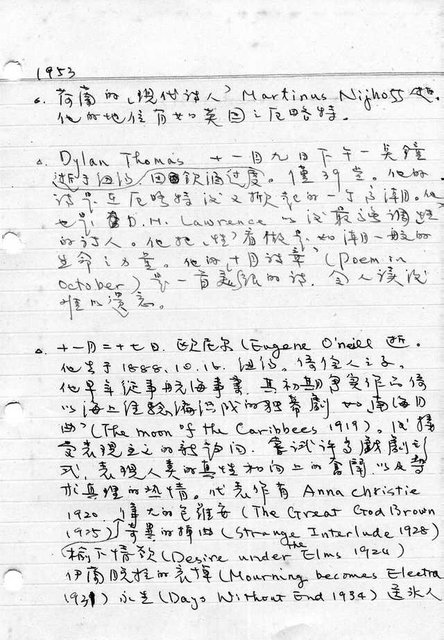 1953
。荷蘭的「現代詩人」Martinus Nijhoff逝。
他的地位有如英国之厄略特。
。Dylan Thomas 十一月九日下午一点鐘
逝于紐約,因飲酒过度。僅39岁。他的
詩是在厄略特後又掀起的一
也是 D.H. Lawrence 以後最強調性
的詩人。他把「性」看做是如潮一般的
生命之力量。他的「十月詩章」(Poem in
October) 是一首美的詩,令人讀後
難以遺忘。
。十一月二十七日,欧尼尔(Eugene O'neill 逝。
他生于1888.10.16. 紐約。優伶人之子。
他早年從事航海事業,其初期写作亦係
以海上经驗編造成的独幕劇 如南海月
曲」(The moon of the Caribbees 1919)。後接
受表現主义的 嘗试许多戲劇之形
式,表現人类的真性和向上的奮鬪,以及
求真理的热情。代表作有 Anna Christie
1920 偉大的 (The Great God Brown
1925) 奇異的插曲 (Strange Interlude 1928)
榆下情慾 (Desire under the Elms 1924)
(Mourning becomes Electra
1931) (Days Without End 1934) 送冰人